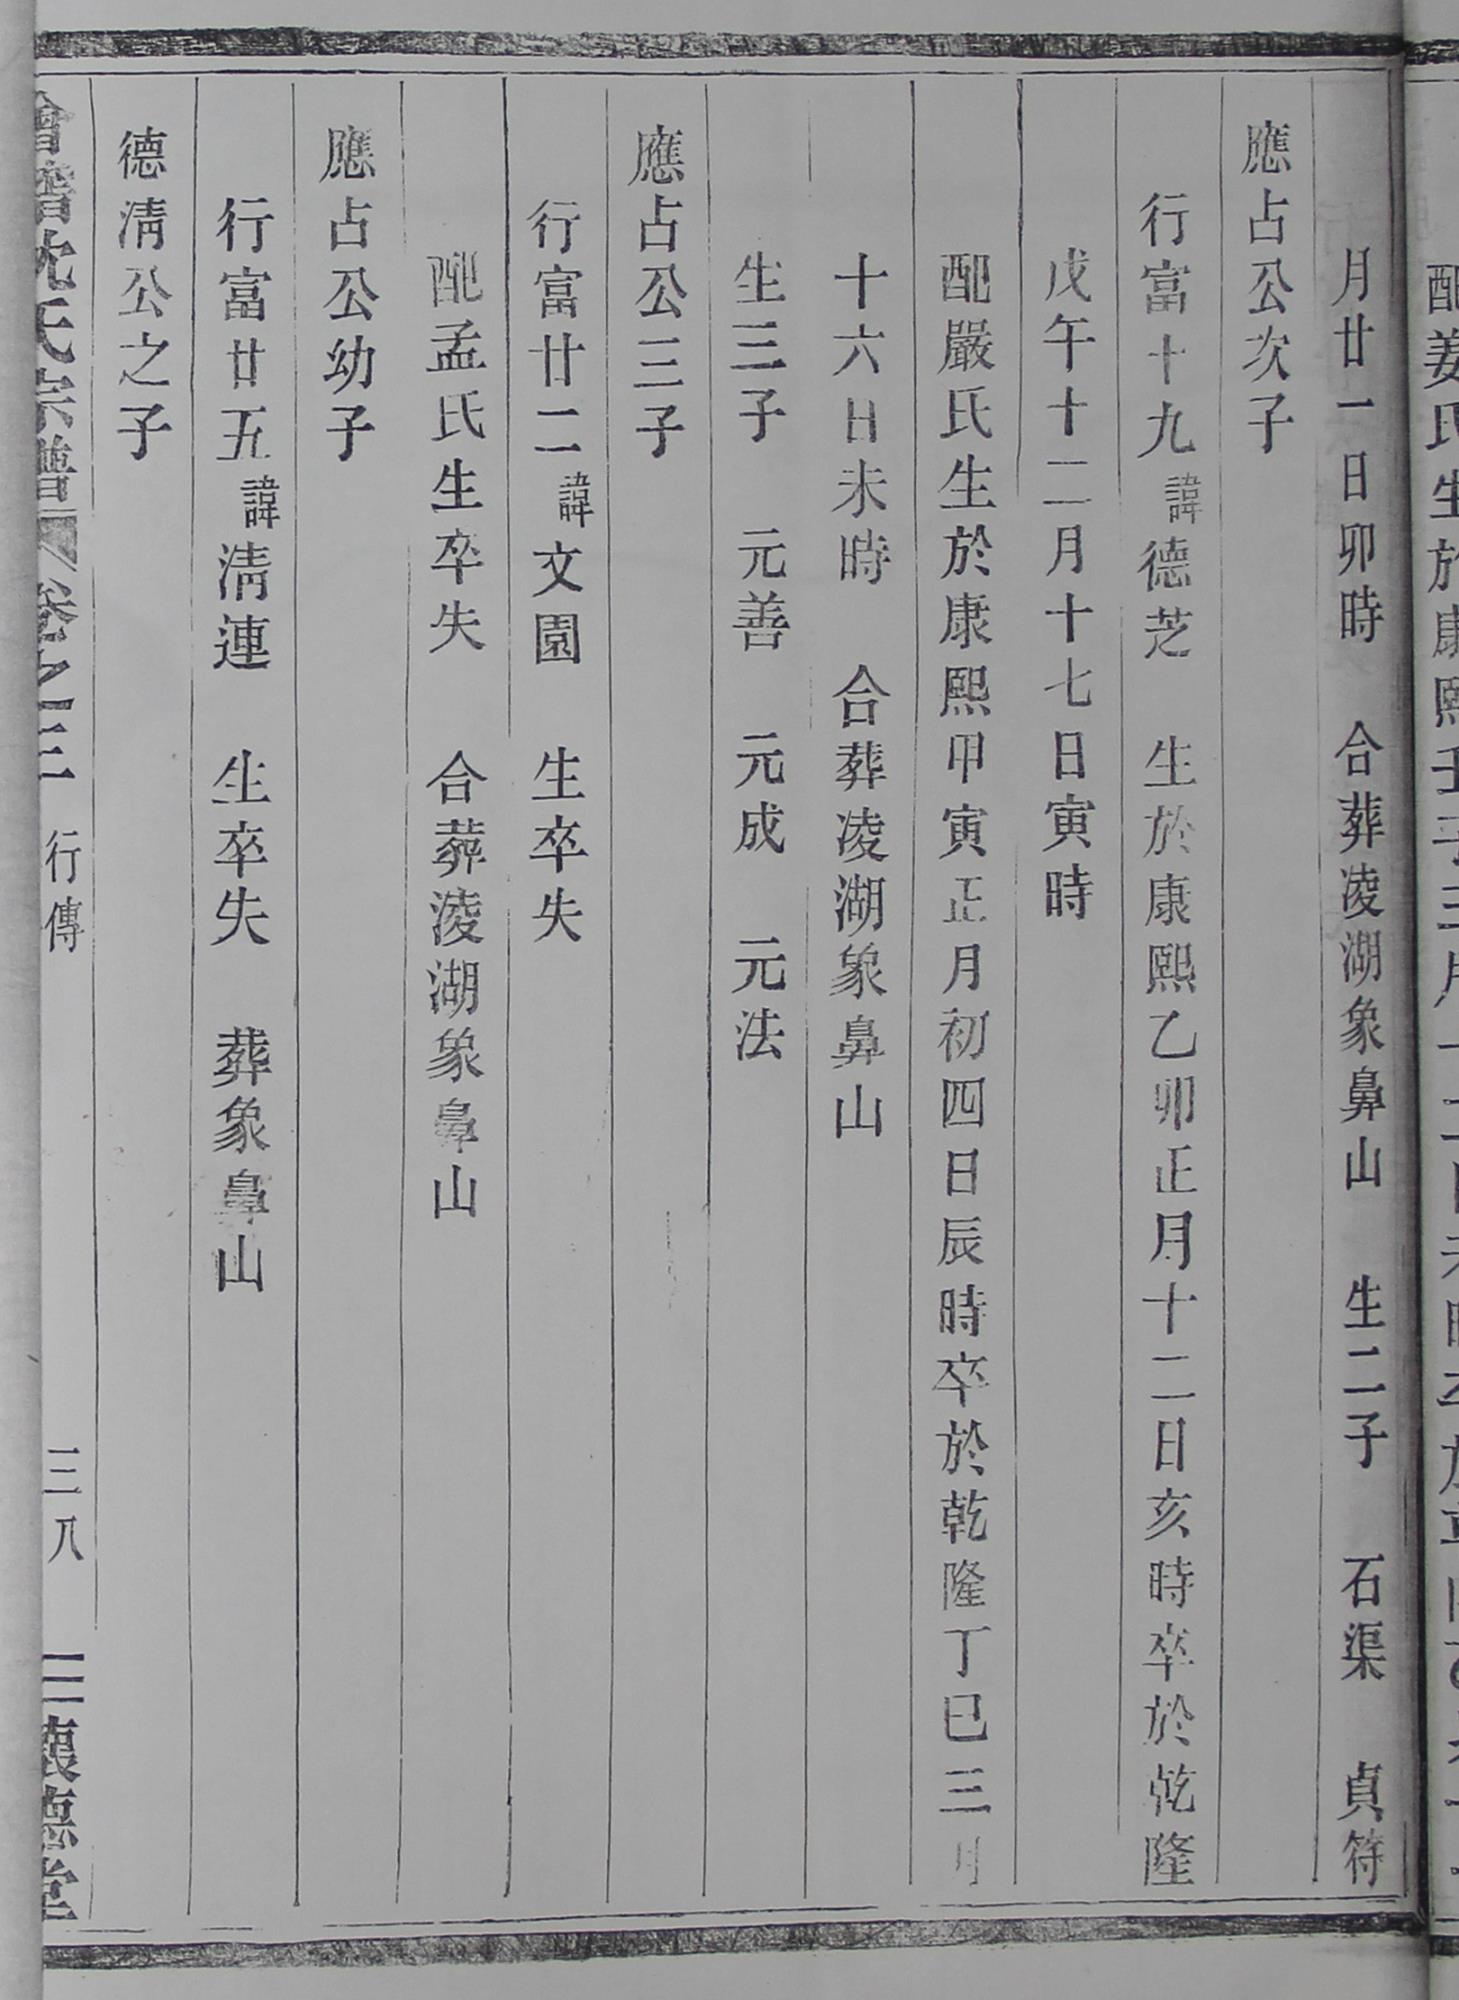 月廿一日卯時　合葬凌湖象鼻山　生二子　石渠　貞符
應占公次子
行富十九諱德芝　生於康熙乙卯正月十二日亥時卒於乾隆
戊午十二月十七日寅時
配嚴氏生於康熙甲寅正月初四日辰時卒於乾隆丁巳三月
十六日未時　合葬凌湖象鼻山
生三子　元善　元成　元法
應占公三子
行富廿二諱文園　生卒失
配孟氏生卒失　合葬淩湖象鼻山
應占公幼子
行富廿五諱清連　生卒失　葬象鼻山
德淸公之子
會稽沈氏宗譜　卷之三　行傳　三八　懷德堂